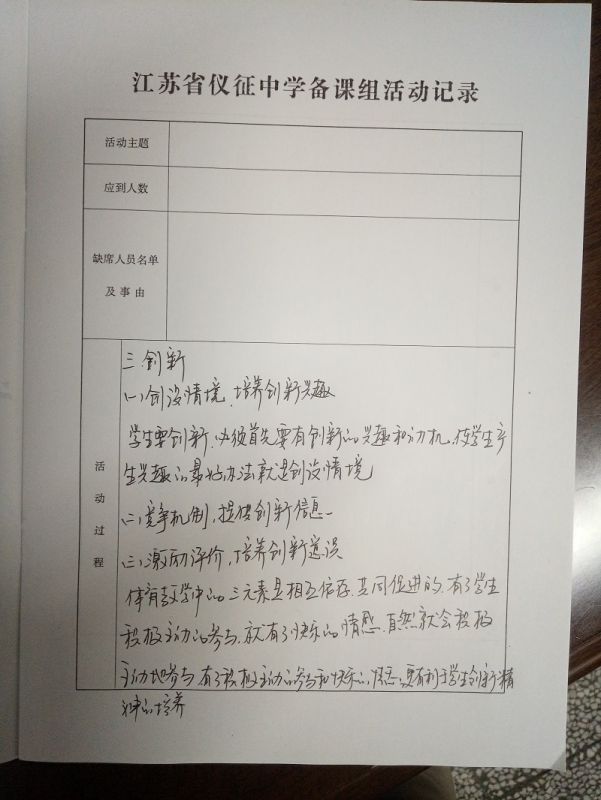 江苏省仪征中学备课组活动记录
活动主题
应到人数
缺席人员名单
及事由
活动过程
三.创新
(一)创设情境，培养创新兴趣
学生要创新，必须首先要有创新的兴趣和动机，使学生产
生兴趣的最好办法就是创设情境
(二)竞争机制，提供创新信息
(三)激励评价，培养创新意识
体育教学中的三元素是相互依存、共同促进的，有了学生
积极主动的参与，就有了快乐的情感，自然就会积极
主动地参与，有了积极主动的参与和快乐的情感，更有利于学生创新精
神的培养